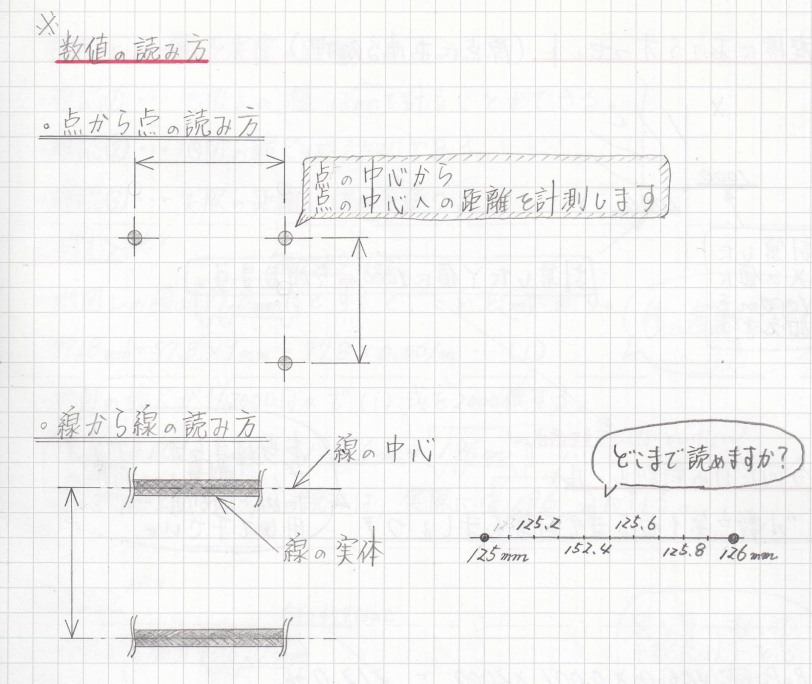 ※
数値の読み方
。点から点の読み方
点の中心から
点の中心への距離を計測します
。線から線の読み方
線の中心
線の実体
どこまで読めますか?
125.2
125.6
125mm
152.4
125.8
126mm